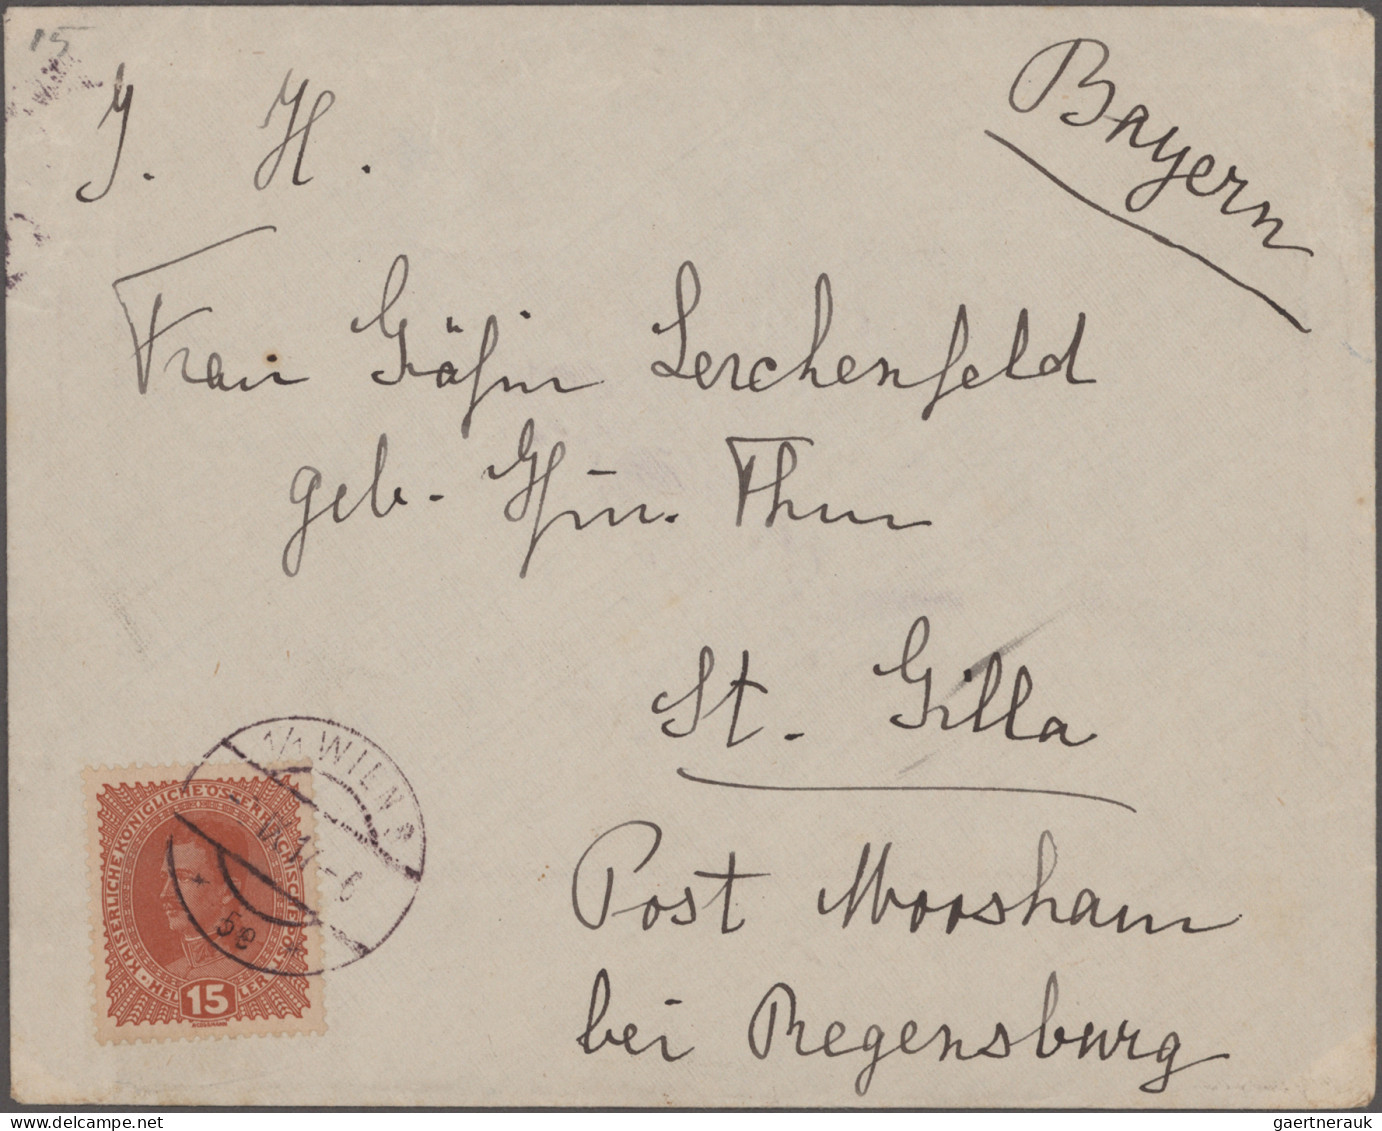 15
J. H.
Bayern
Frau Gräfin Lerchenfeld
geb. Gfin. Thun
St. Gilla
Post Moosham
bei Regensburg
1/1 WIEN
17 - 6
5e
KAISERLICHE KÖNIGLICHE ÖSTERREICHISCHE POST
HELLER
15
gaertnerauk